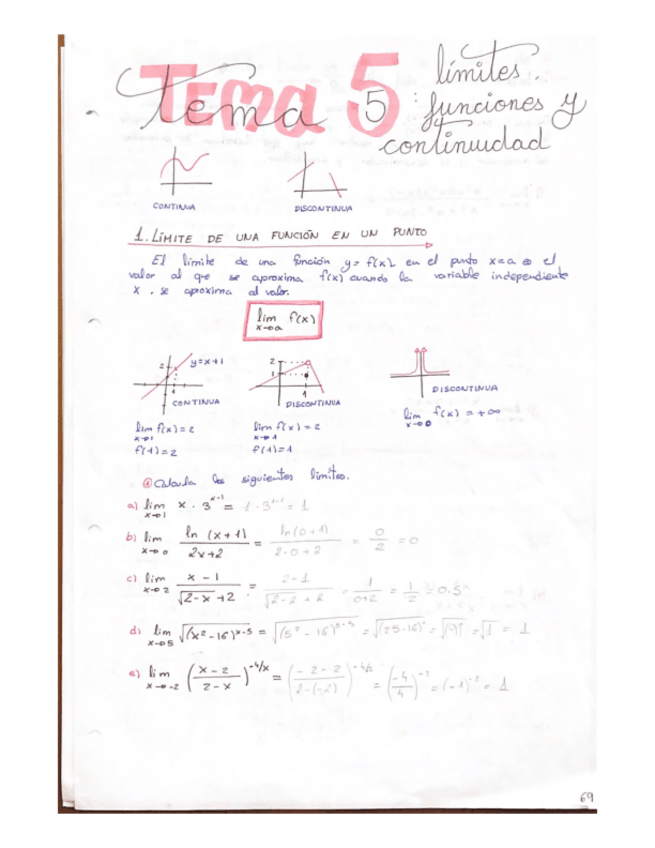 Tema 5
límites.
5: funciones y
continuidad
CONTINUA
DISCONTINUA
1. LÍMITE DE UNA FUNCIÓN EN UN PUNTO
El límite de una función y = f(x) en el punto x=a es el
valor al que se aproxima f(x) cuando la variable independiente
x, se aproxima al valor.
lim f(x)
x→a
2
y=x+1
1
CONTINUA
2
1
1
DISCONTINUA
DISCONTINUA
lim f(x) = 2
x→1
f(1) = 2
lim f(x) = 2
x→1
f(1) = 1
lim f(x) = +∞
x→0
① Calcula los siguientes límites.
a) lim x→1 x · 3^(x-1) = 1 · 3^(1-1) = 1
b) lim x→0 ln (x+1) / 2x+2 = ln(0+1) / 2·0+2 = 0/2 = 0
c) lim x→2 x-1 / √2-x +2 = 2-1 / √2-2 +2 = 1/0+2 = 1/2 = 0.5
d) lim x→5 √(x²-16)^(x-5) = √(5²-16)^(5-5) = √(25-16)° = √(9)° = √1 = 1
e) lim x→-2 (x-2 / 2-x)^(-4/x) = (-2-2 / 2-(-2))^(-4/2) = (-4/4)^(-2) = (-1)^(-2) = 1
69